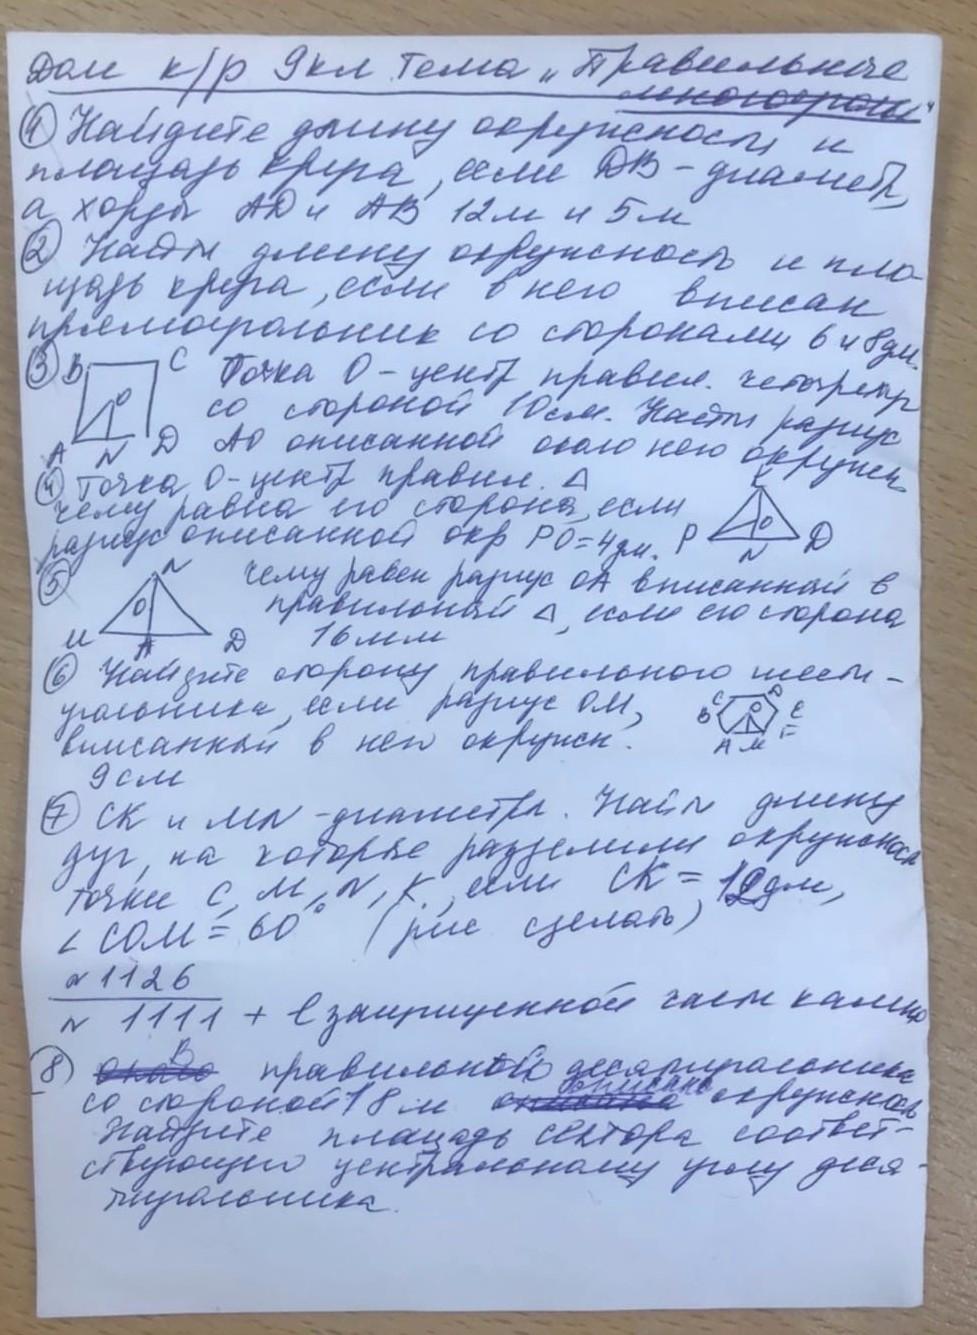 Дом к/р 9кл Тема „Правильные
многоугольн"
① Найдите длину окружности и
площадь круга, если DB - диаметр,
а хорды AD и AB 12м и 5м
② Найти длину окружность и пло-
щадь круга, если в него вписан
прямоугольник со сторонами 6 и 8дм.
③ B C Точка O - центр правил. четырехуг
O со стороной 10см. Найти радиус
A N D AO описанной около него окружн
④ Точка O - центр правил. △
чему равна его сторона, если
радиус описанной окр PO = 4дм. P O N D
⑤ N Чему равен радиус OA вписанной в
O правильный △, если его сторона
M A D 16мм
⑥ Найдите сторону правильного шести-
угольника, если радиус OM, C D
вписанный в него окружн. B O E A M
9см
⑦ CK и MN - диаметры. Найти длину
дуг, на которые разделили окружность
точки C, M, N, K, если CK = 12дм,
∠ COM = 60° (рис сделать)
N 1126
N 1111 + l защищенной части
8) В правильной десятиугольника
со стороной 18м вписана окружность
Найдите площадь сектора соответ-
ствующего центральному углу деся-
тиугольника.